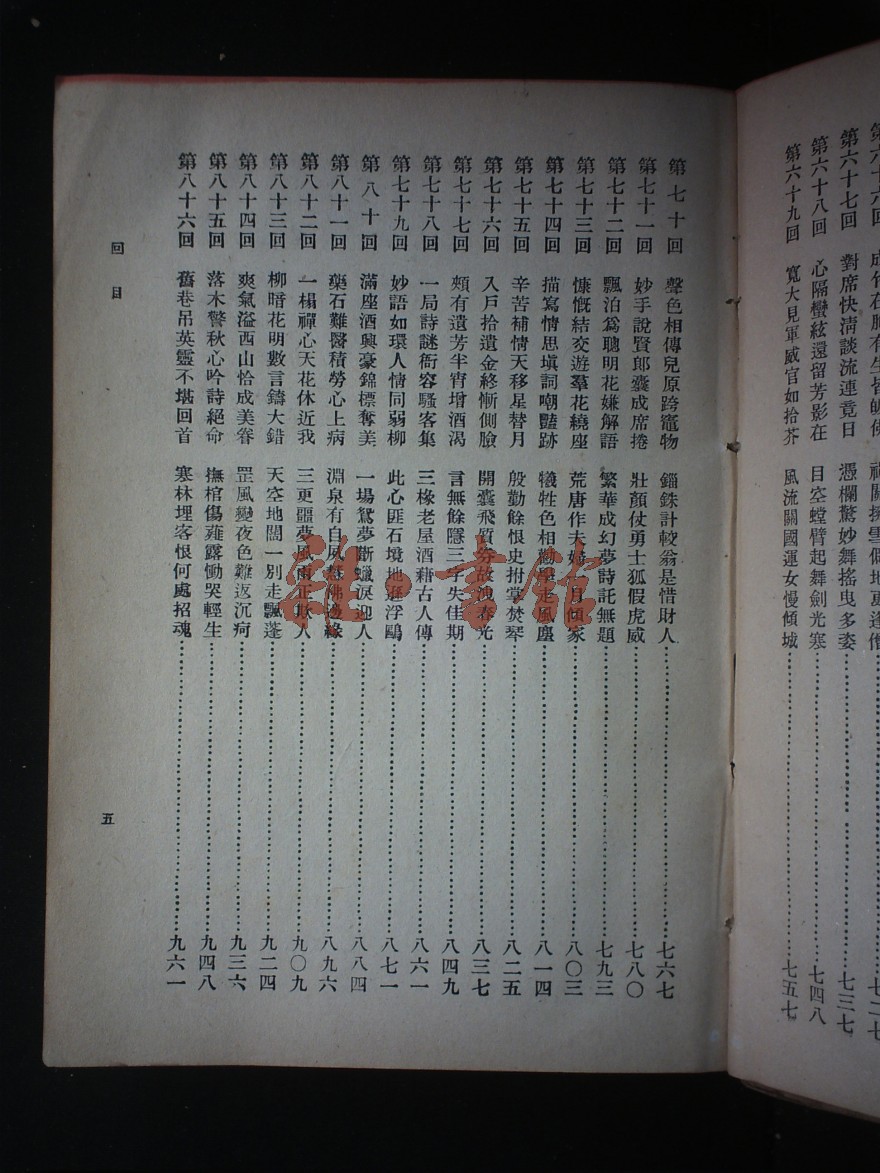 成竹在胸有生皆
第六十七回　對席快淸談流連竟日　憑欄驚妙舞搖曳多姿　七三七
第六十八回　心隔蠻絃還留芳影在　目空螳臂起舞劍光寒　七四八
第六十九回　寬大見軍威官如拾芥　風流關國運女慢傾城　七五七
第七十回　聲色相傳兒原跨竈物　錙銖計較翁是惜財人　七六七
第七十一回　妙手說賢郎囊成席捲　壯顏仗勇士狐假虎威　七八〇
第七十二回　飄泊爲聰明花嫌解語　繁華成幻夢詩託無題　七九三
第七十三回　慷慨結交遊羣花繞座　荒唐作夫婦一月傾家　八〇三
第七十四回　描寫情思塡詞嘲豔跡　犧牲色相勸學走風塵　八一四
第七十五回　辛苦補情天移星替月　殷勤餘恨史拊掌焚琴　八二五
第七十六回　入戶拾遺金終慚側臉　開囊飛質券故洩春光　八三七
第七十七回　頰有遺芳半宵增酒渴　言無餘隱三字失佳期　八四九
第七十八回　一局詩謎衙容騷客集　三椽老屋酒藉古人傳　八六一
第七十九回　妙語如環人情同弱柳　此心匪石境地逐浮鷗　八七一
第八十回　滿座酒興豪錦標奪美　一場鴛夢斷蠟淚迎人　八八四
第八十一回　藥石難醫積勞心上病　淵泉有自夙慧佛邊緣　八九六
第八十二回　一榻禪心天花休近我　三更噩夢風雨正欺人　九〇九
第八十三回　柳暗花明數言鑄大錯　天空地闊一別走飄蓬　九二四
第八十四回　爽氣溢西山恰成美眷　罡風變夜色難返沉疴　九三六
第八十五回　落木警秋心吟詩絕命　撫棺傷薤露慟哭輕生　九四八
第八十六回　舊巷吊英靈不堪回首　寒林埋客恨何處招魂　九六一
回目
五